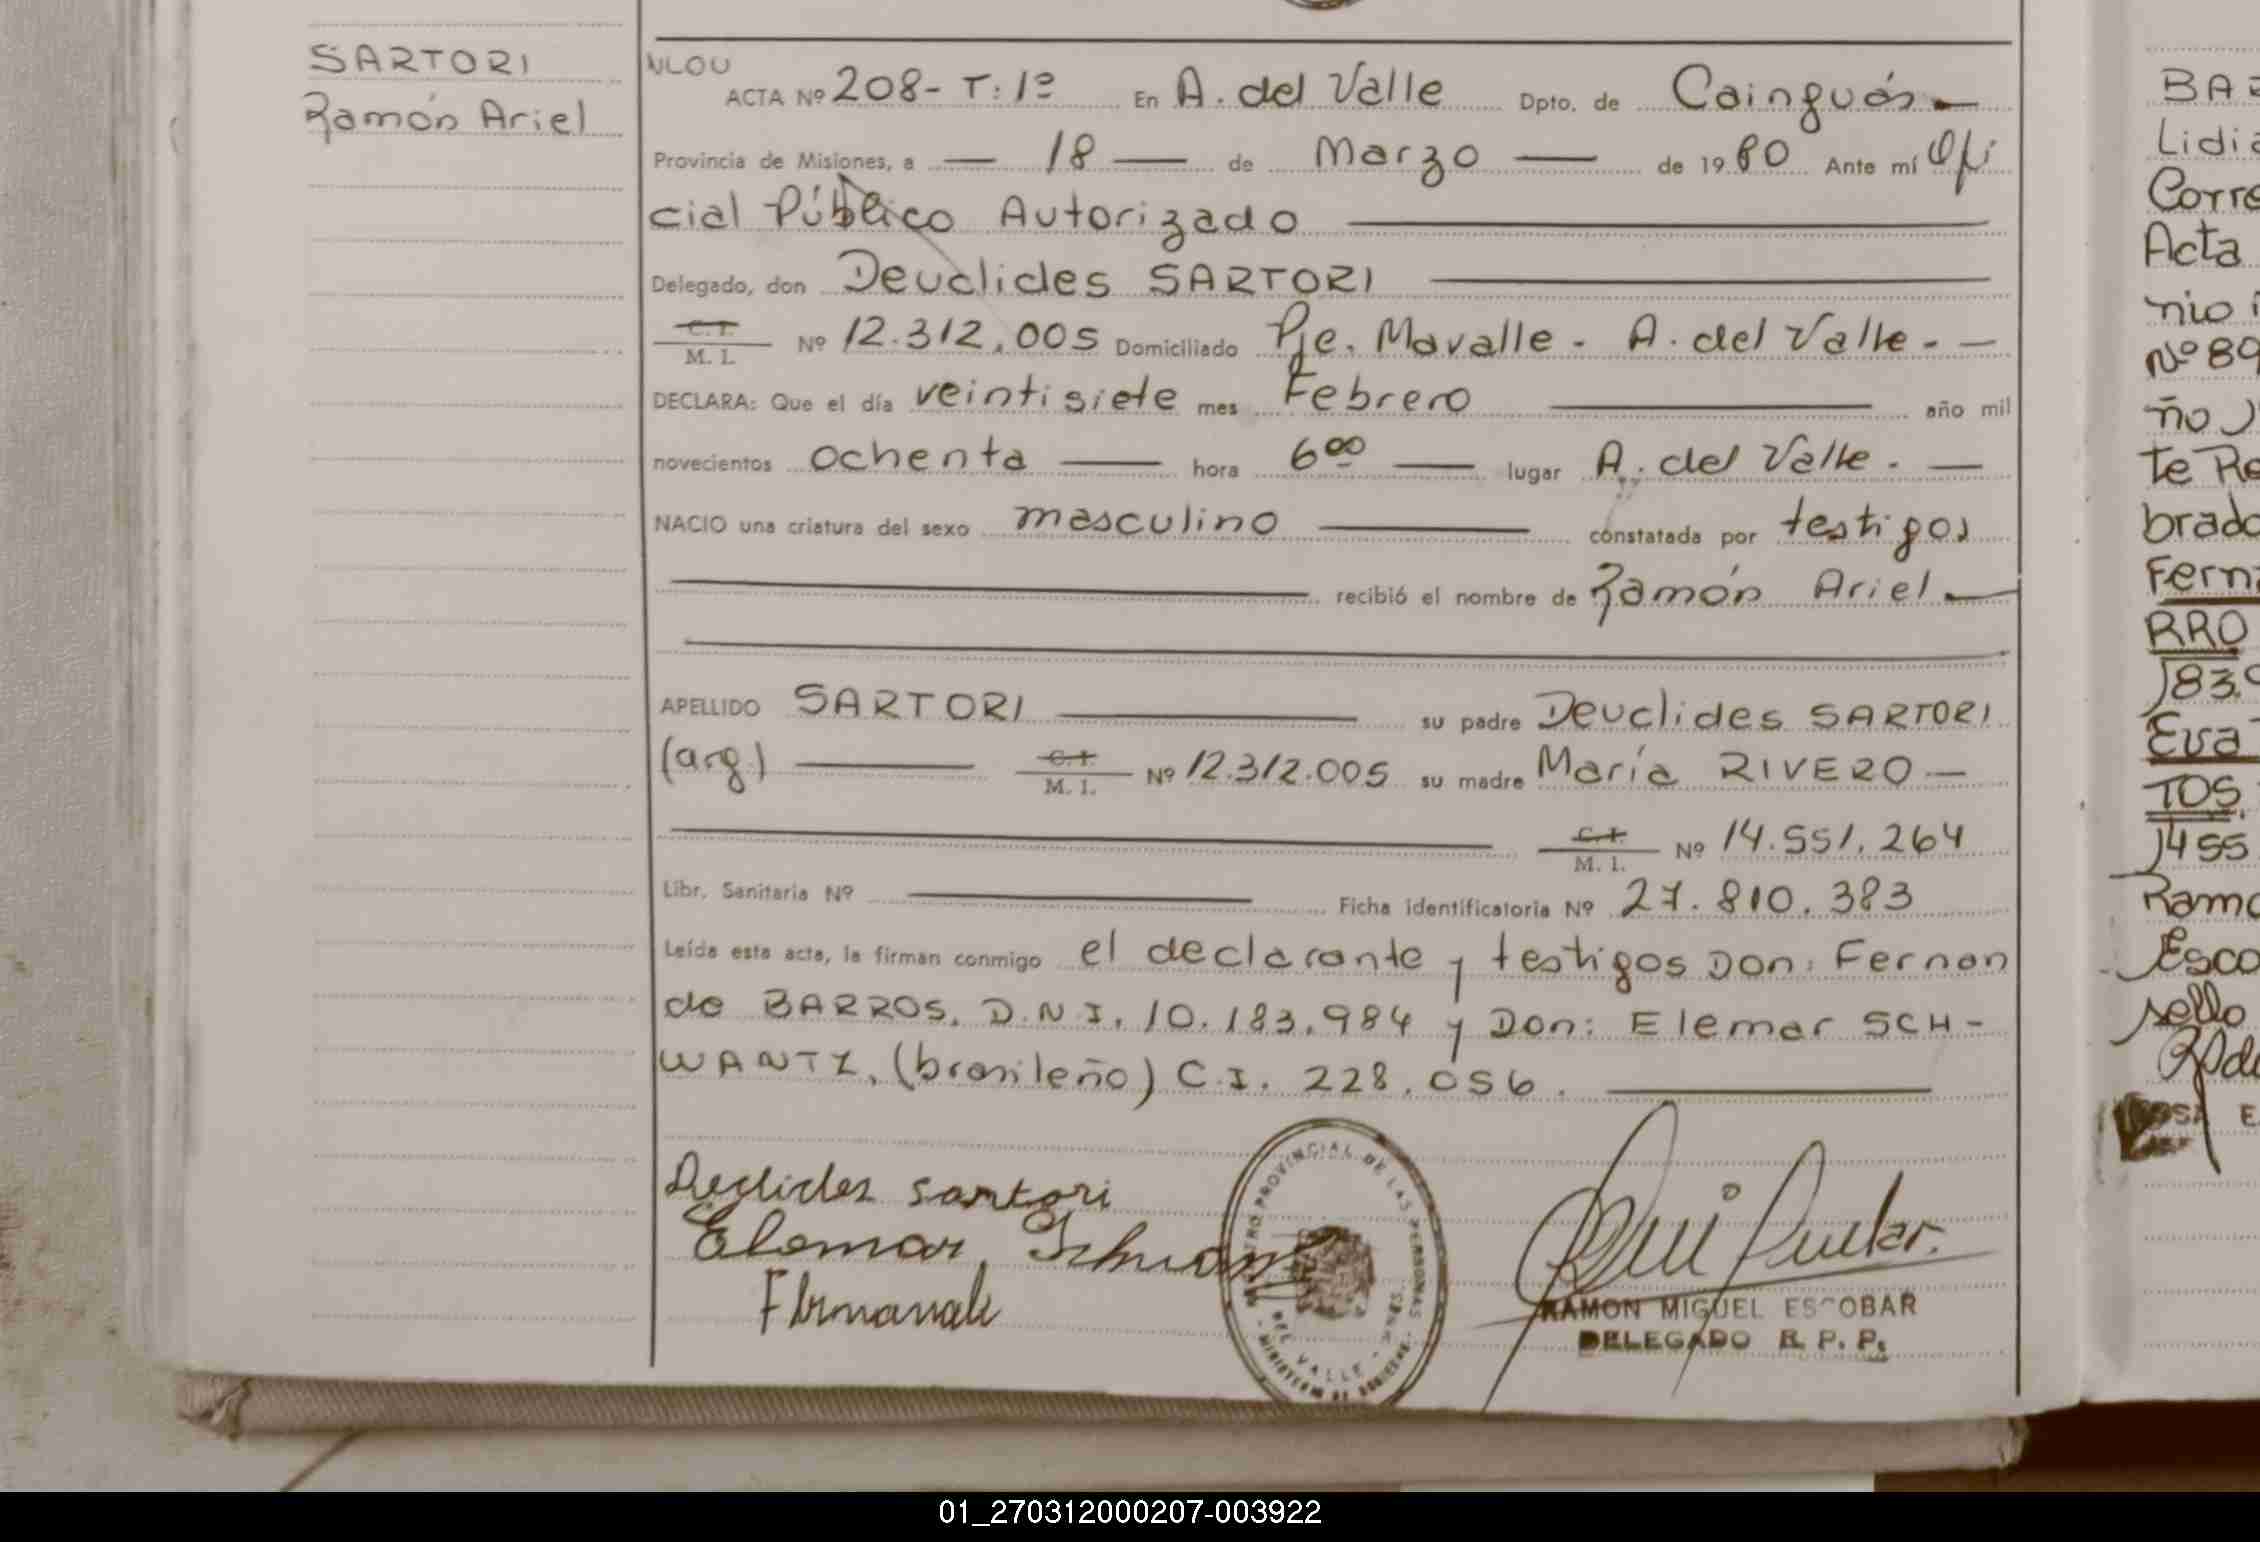 SARTORI
Ramón Ariel
NLOU
ACTA Nº 208- T: 1º En A. del Valle Dpto. de Cainguás
Provincia de Misiones, a 18 de Marzo de 1980 Ante mí Ofi
cial Público Autorizado
Delegado, don Deuclides SARTORI
C. I.
M. I. Nº 12.312.005 Domiciliado Pje. Mavalle - A. del Valle -
DECLARA: Que el día veintisiete mes Febrero año mil
novecientos ochenta hora 6⁰⁰ lugar A. del Valle.
NACIO una criatura del sexo masculino constatada por testigos
recibió el nombre de Ramón Ariel
APELLIDO SARTORI su padre Deuclides SARTORI
(arg.) C. I.
M. I. Nº 12.312.005 su madre María RIVERO
C. I.
M. I. Nº 14.551.264
Libr. Sanitaria Nº Ficha identificatoria Nº 27.810.383
Leída esta acta, la firman conmigo el declarante y testigos Don: Fernan
do BARROS. D.N.I. 10.183.984 y Don: Elemar SCH-
WANTZ, (brasileño) C.I. 228.056.
sartori
Elemar
REGISTRO PROVINCIAL DE LAS PERSONAS
DEL VALLE
RAMON MIGUEL ESCOBAR
DELEGADO R. P. P.
BAR
Lidia
Corre
Acta
nio i
Nº 89
ño
te Re
brado
Ferna
RRO
183.9
Eva
TOS
1455
Ramo
Esco
sello
01_270312000207-003922